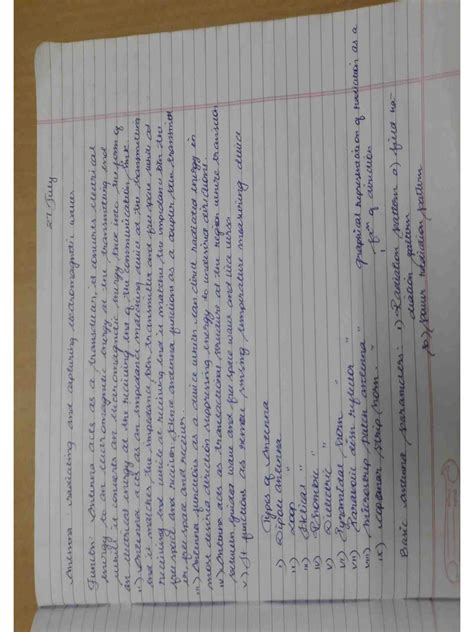 27 July
Antenna - radiating and capturing electromagnetic waves.
Function: Antenna acts as a transducer, it converts electrical
energy to an electromagnetic energy at the transmitting end
while it converts an electromagnetic energy back into the form of
an electrical energy at the receiving end of the communication link
ii) Antenna acts as an impedance matching device at the transmitting
and it matches the impedance btn transmitter and free space while at
receiving end while at receiving end it matches the impedance btn the
free space and receiver. Hence antenna functions as a coupler btn transmitter
or free space and receiver.
iii) Antenna functions as a device which can direct radiated energy in
more desired direction suppressing energy to undesired directions.
iv) Antenna acts as transactional structure at the region where transition
between guided wave and free space wave and vice versa
v) It functions as remote sensing temperature measuring device
Types of Antenna
i) Dipole antenna
ii) Loop "
iii) Helical "
iv) Rhombic "
v) Dielectric "
vi) Pyramidal horn "
vii) Parabolic dish reflector "
viii) Microstrip patch antenna "
ix) strip horn "
graphical representation of radiation as a
fxn of direction
Basic antenna parameters: i) Radiation pattern a) field ra-
diation pattern
b) power radiation pattern